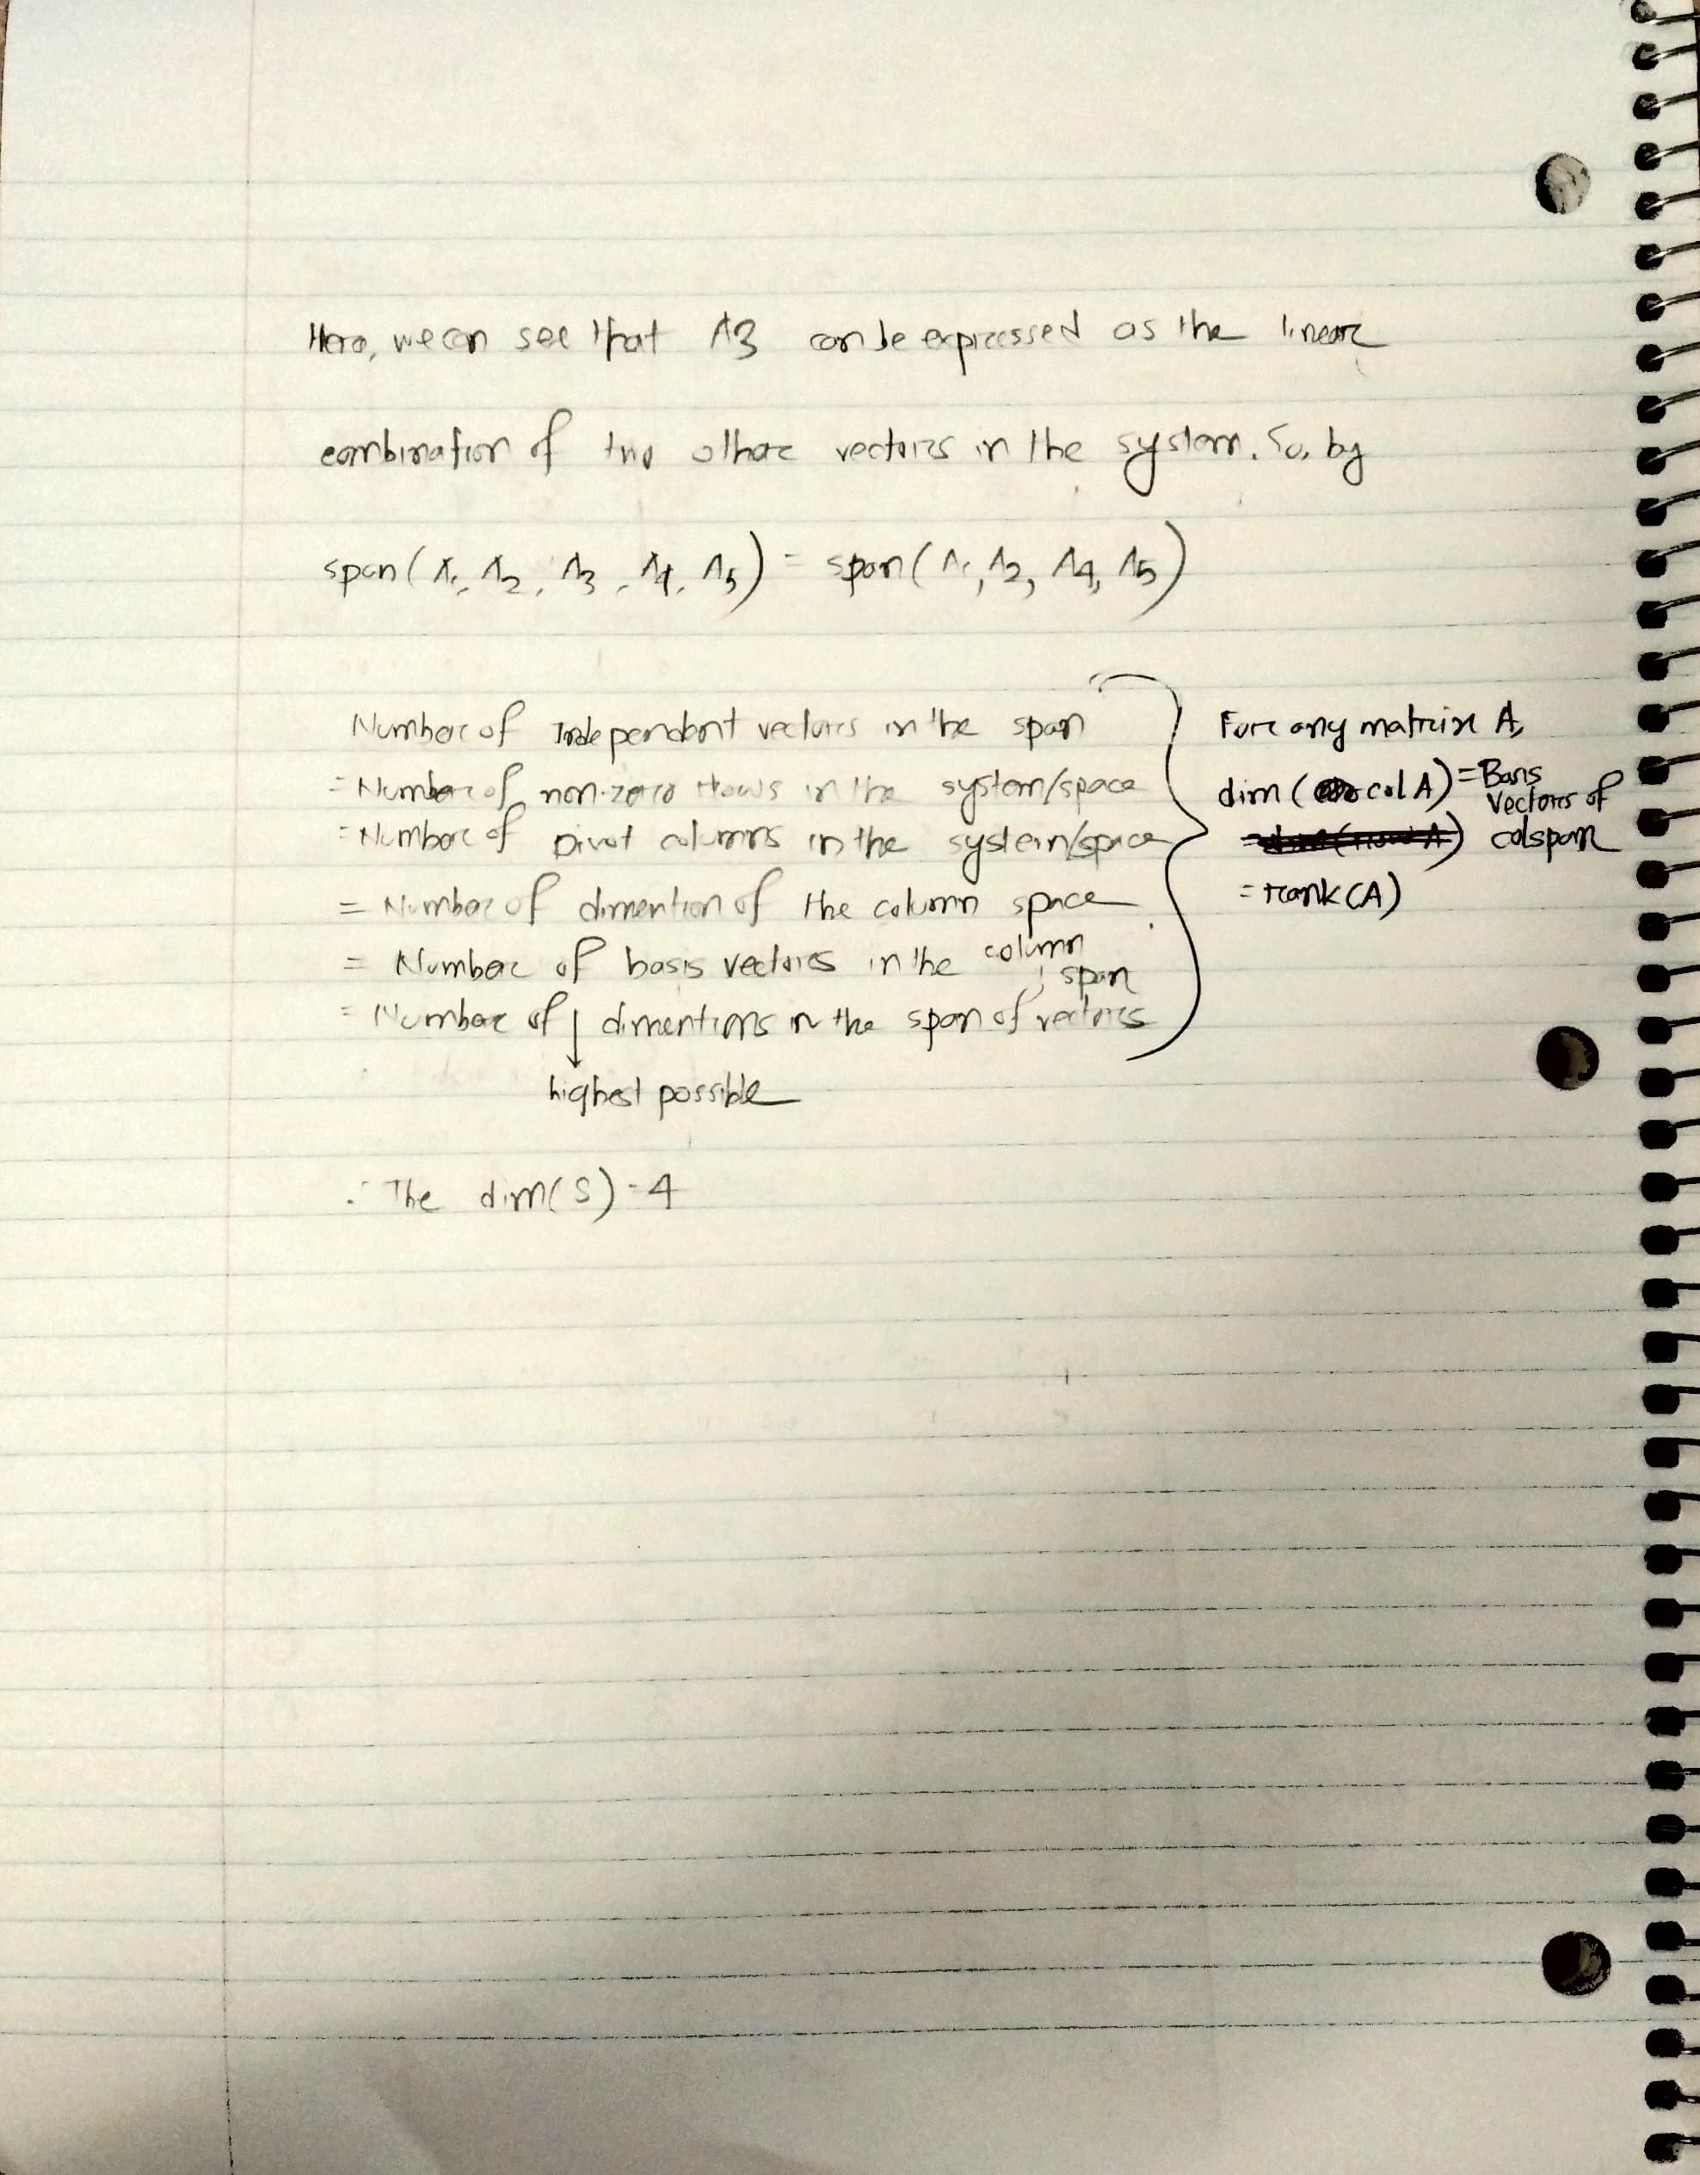 Here, we can see that A3 can be expressed as the linear
combination of two other vectors in the system. So, by
span(A1, A2, A3, A4, A5) = span(A1, A2, A4, A5)
Number of Independent vectors in the span
= Number of non-zero rows in the system/space
= Number of pivot columns in the system/space
= Number of dimention of the column space
= Number of basis vectors in the column span
= Number of ↓ dimentions in the span of vectors
highest possible
For any matrix A,
dim (col A) = Basis
vectors of
colspan
= rank (A)
∴ The dim(S) = 4